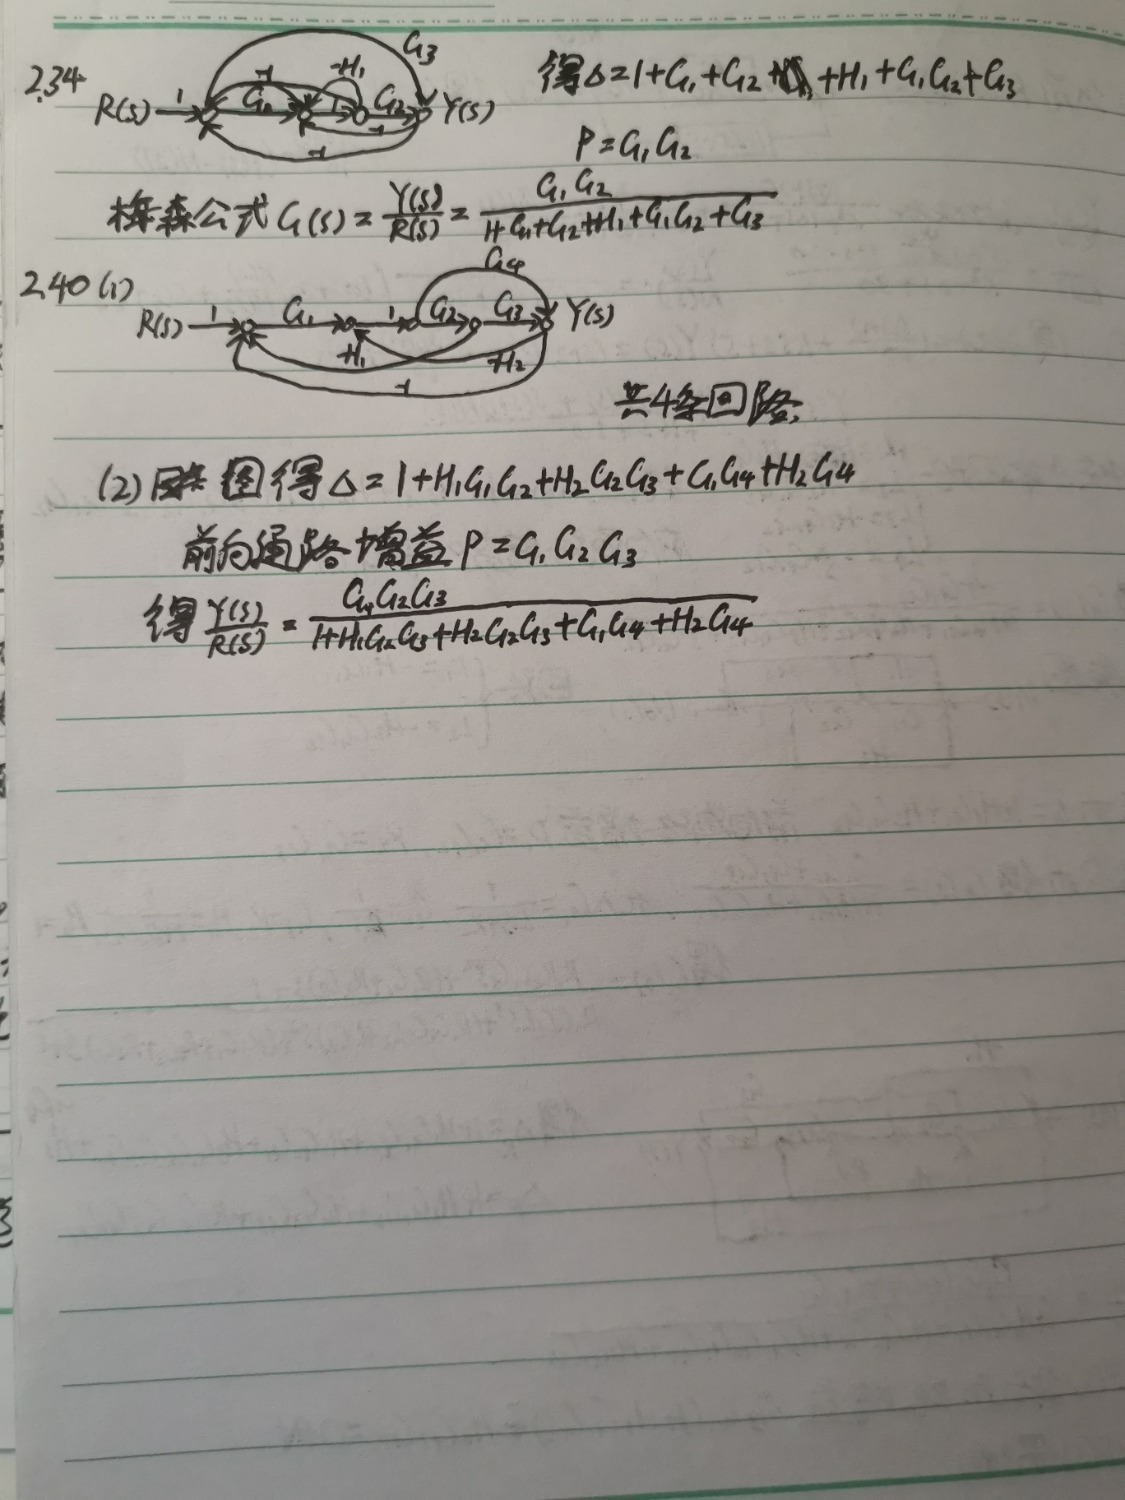 2.34
G3
-1
-H1
R(S) 1 G1 1 G2 Y(S)
-1
-1
得Δ=1+G1+G2+H1+G1G2+G3
P=G1G2
梅森公式G(S)=Y(S)/R(S)=G1G2/1+G1+G2+H1+G1G2+G3
2.40(1)
G4
R(S) 1 G1 1 G2 G3 Y(S)
-H1 -H2
-1
共4条回路
(2)图得Δ=1+H1G1G2+H2G2G3+G1G4+H2G4
前向通路增益P=G1G2G3
得Y(S)/R(S)=G1G2G3/1+H1G2G3+H2G2G3+G1G4+H2G4